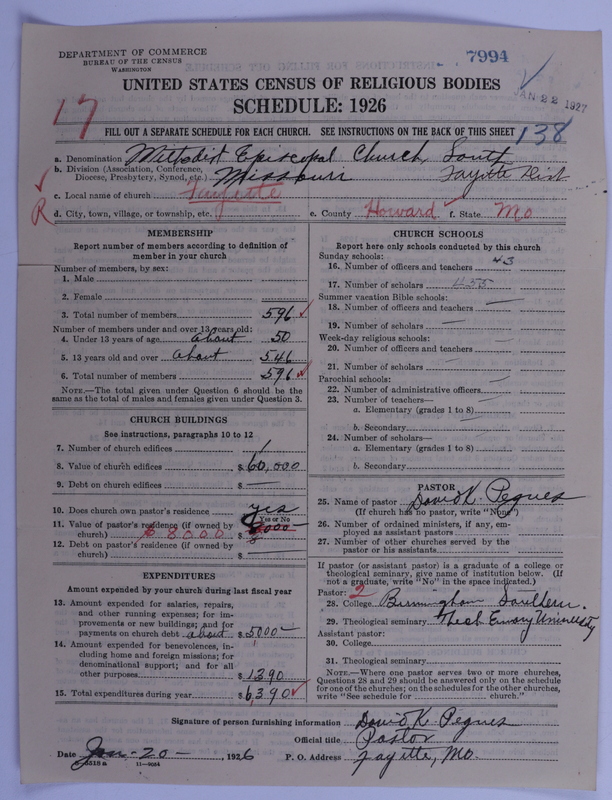 DEPARTMENT OF COMMERCE
BUREAU OF THE CENSUS
WASHINGTON
7994
JAN 22 1927
UNITED STATES CENSUS OF RELIGIOUS BODIES
SCHEDULE: 1926
17
FILL OUT A SEPARATE SCHEDULE FOR EACH CHURCH. SEE INSTRUCTIONS ON THE BACK OF THIS SHEET
138
a. Denomination Methodist Episcopal Church, South
b. Division (Association, Conference, Diocese, Presbytery, Synod, etc.) Missouri Fayette Dist
c. Local name of church Fayette
R
d. City, town, village, or township, etc. e. County Howard f. State Mo
MEMBERSHIP
Report number of members according to definition of
member in your church
Number of members, by sex:
1. Male
2. Female
3. Total number of members 596
Number of members under and over 13 years old:
4. Under 13 years of age about 50
5. 13 years old and over about 546
6. Total number of members 596
NOTE.—The total given under Question 6 should be the
same as the total of males and females given under Question 3.
CHURCH BUILDINGS
See instructions, paragraphs 10 to 12
7. Number of church edifices 1
8. Value of church edifices $ 60,000
9. Debt on church edifices $ —
10. Does church own pastor's residence yes
Yes or No
11. Value of pastor's residence (if owned by
church) $ 8000 $ 8000
12. Debt on pastor's residence (if owned by
church) $
EXPENDITURES
Amount expended by your church during last fiscal year
13. Amount expended for salaries, repairs,
and other running expenses; for im-
provements or new buildings; and for
payments on church debt about $ 5000
14. Amount expended for benevolences, in-
cluding home and foreign missions; for
denominational support; and for all
other purposes $ 1390
15. Total expenditures during year $ 6390
CHURCH SCHOOLS
Report here only schools conducted by this church
Sunday schools:
16. Number of officers and teachers 43
17. Number of scholars 455
Summer vacation Bible schools:
18. Number of officers and teachers —
19. Number of scholars —
Week-day religious schools:
20. Number of officers and teachers —
21. Number of scholars —
Parochial schools:
22. Number of administrative officers —
23. Number of teachers—
a. Elementary (grades 1 to 8)
b. Secondary
24. Number of scholars—
a. Elementary (grades 1 to 8)
b. Secondary
PASTOR
25. Name of pastor David K. Pegues
(If church has no pastor, write "None")
26. Number of ordained ministers, if any, em-
ployed as assistant pastors
27. Number of other churches served by the
pastor or his assistants
If pastor (or assistant pastor) is a graduate of a college or
theological seminary, give name of institution below. (If
not a graduate, write "No" in the space indicated.)
Pastor: 2
28. College Birmingham Southern.
29. Theological seminary Theol. Emory University
Assistant pastor:
30. College
31. Theological seminary
NOTE.—Where one pastor serves two or more churches,
Questions 28 and 29 should be answered only on the schedule
for one of the churches; on the schedules for the other churches,
write "See schedule for church."
Signature of person furnishing information David K. Pegues
Official title Pastor
Date Jan-20-, 1926 P. O. Address Fayette, Mo.
11—9084